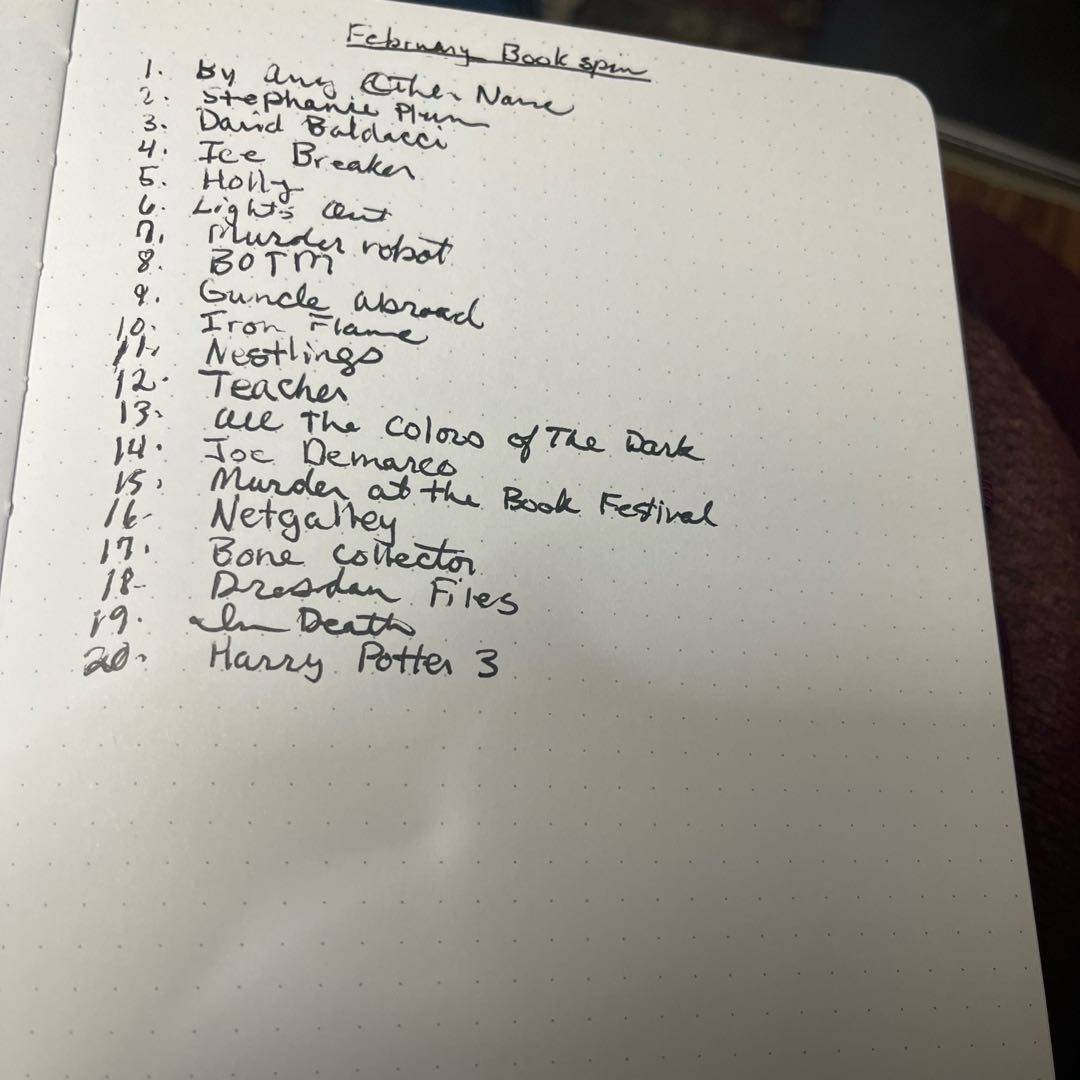 February Book spin
1. By any Other Name
2. Stephanie Plum
3. David Baldacci
4. Ice Breaker
5. Holly
6. Lights Out
7. Murder robot
8. BOTM
9. Guncle abroad
10. Iron Flame
11. Nestlings
12. Teacher
13. all The Colors of The Dark
14. Joe Demarco
15. Murder at the Book Festival
16. Netgalley
17. Bone collector
18. Dresdan Files
19. In Death
20. Harry Potter 3